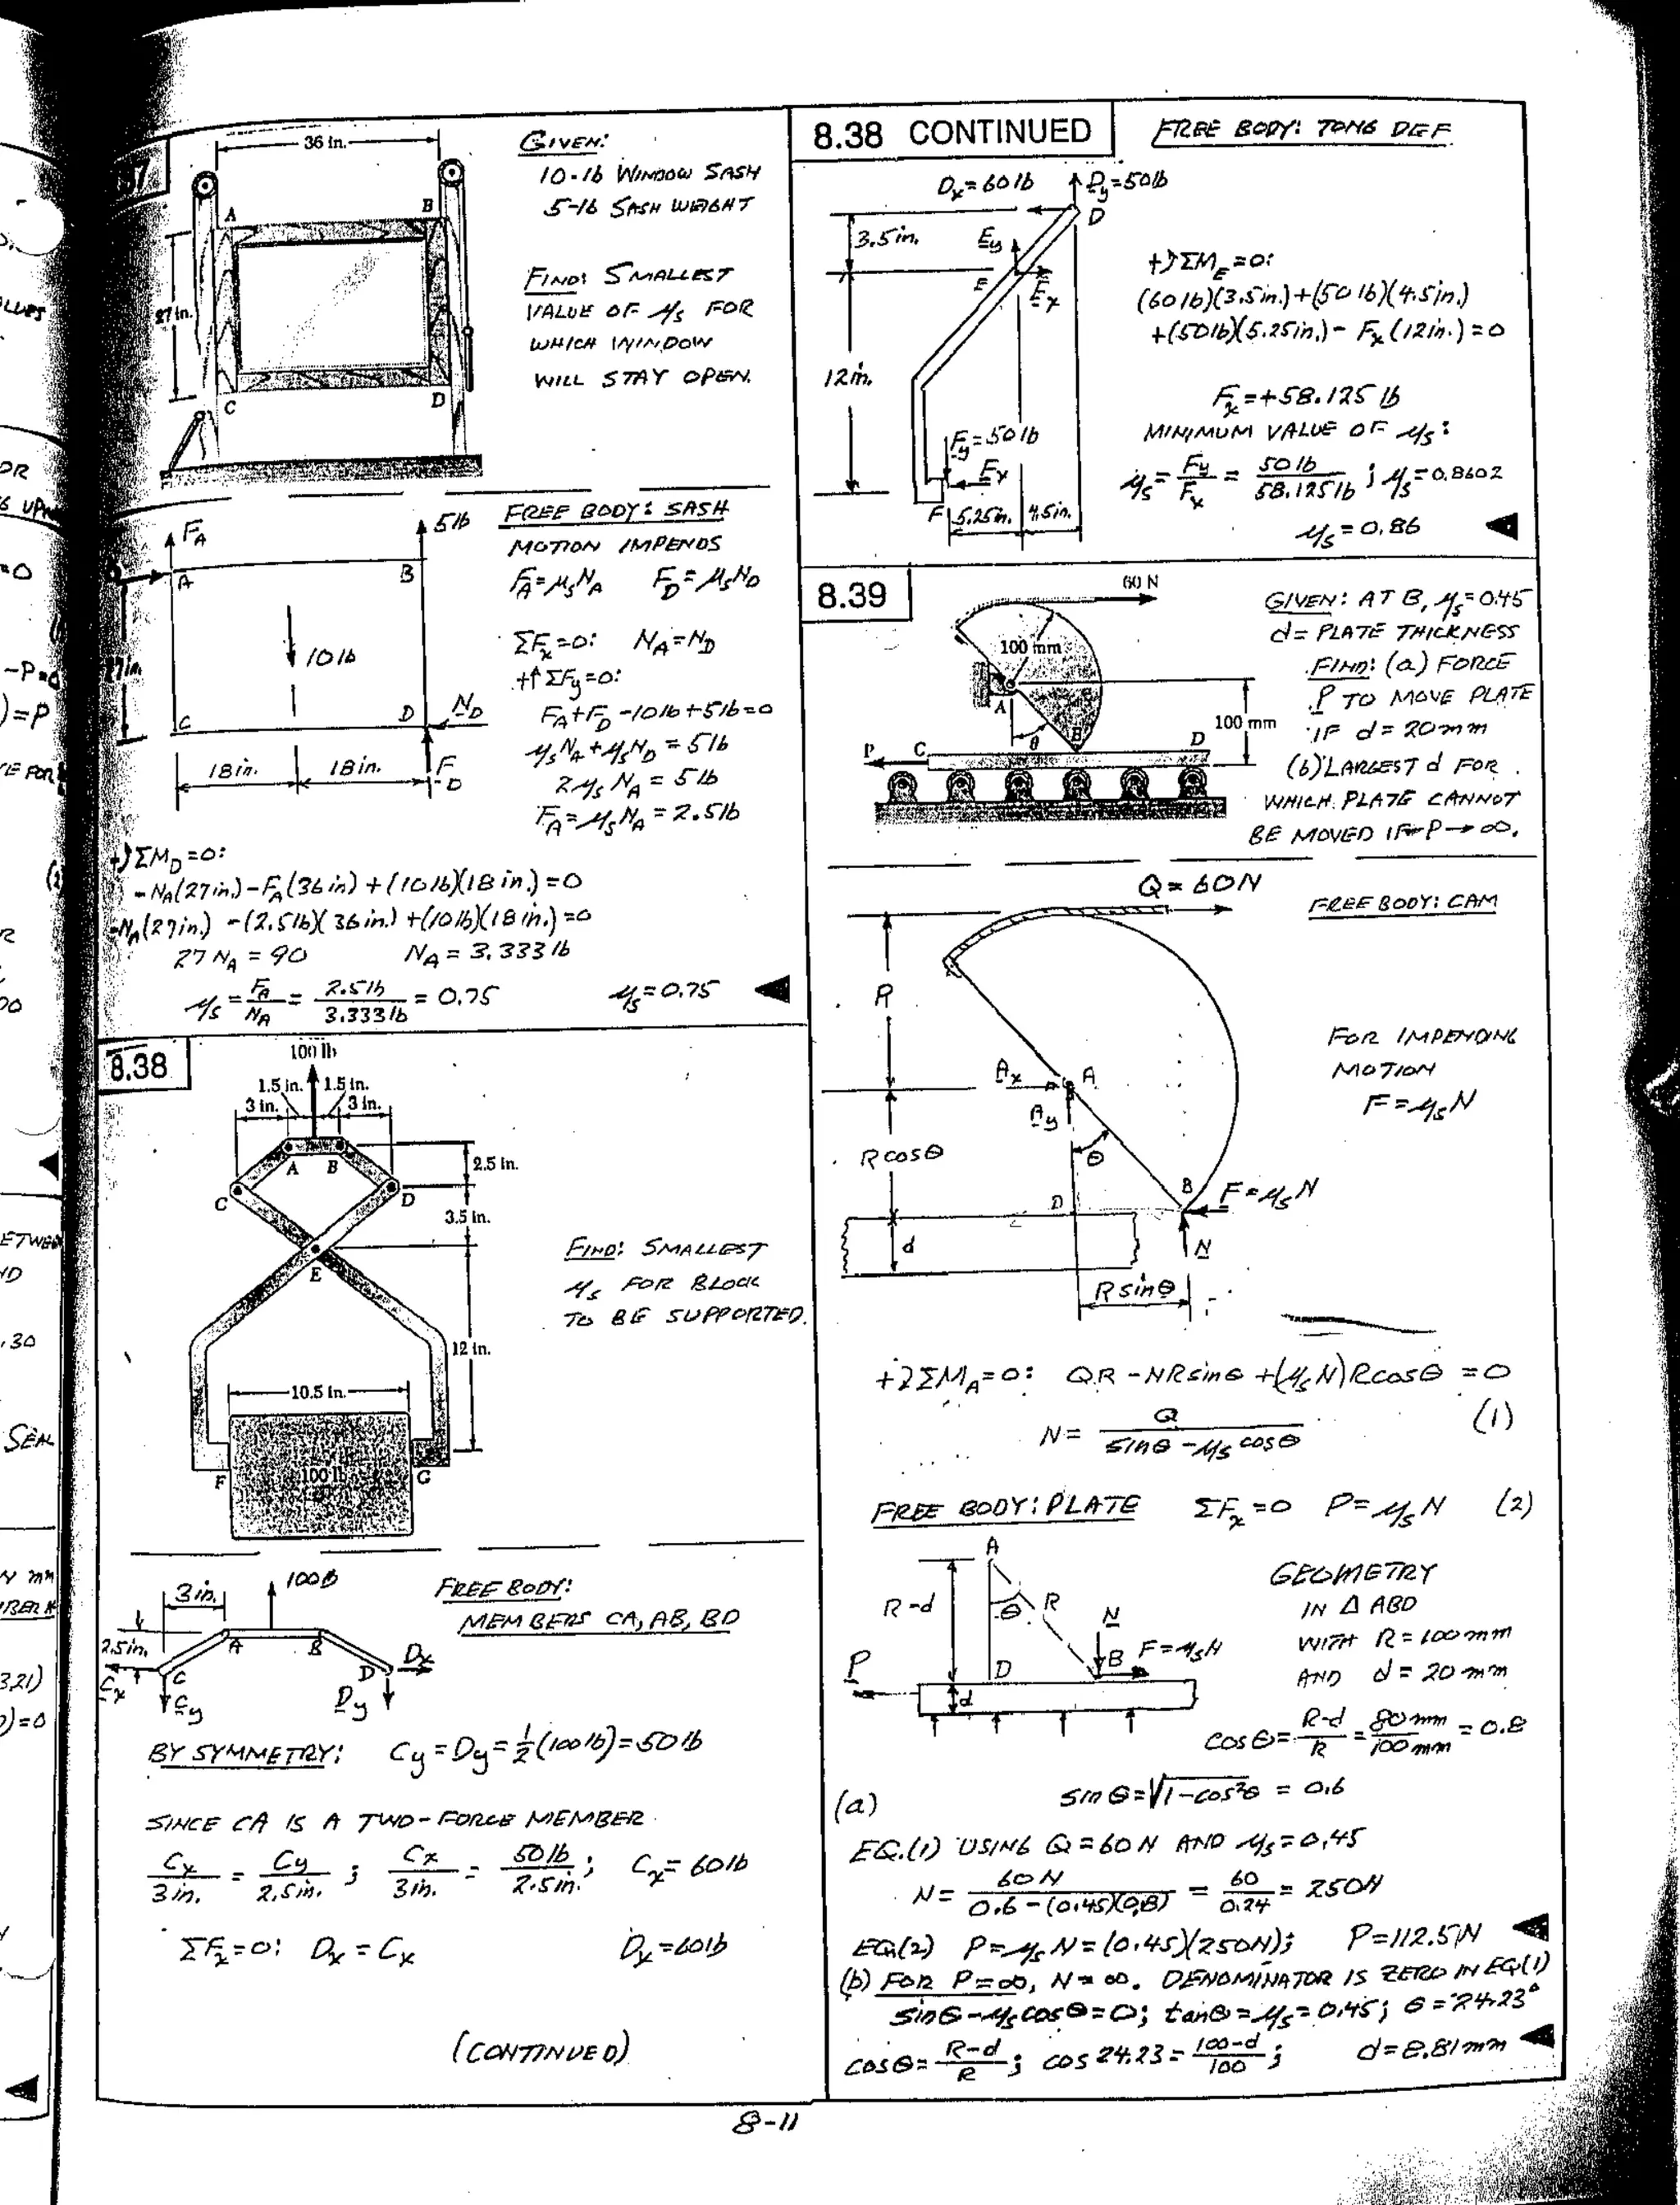 36 in.
A
B
27 in.
C
D
GIVEN:
10-lb WINDOW SASH
5-lb SASH WEIGHT
FIND: SMALLEST
VALUE OF μs FOR
WHICH WINDOW
WILL STAY OPEN.
FA
5 lb
A
B
10 lb
C
D
ND
18 in.
18 in.
FD
FREE BODY: SASH
MOTION IMPENDS
FA = μsNA FD = μsND
ΣFx = 0: NA = ND
+↑ ΣFy = 0:
FA + FD - 10 lb + 5 lb = 0
μsNA + μsND = 5 lb
2μsNA = 5 lb
FA = μsNA = 2.5 lb
+) ΣMD = 0:
- NA(27 in.) - FA(36 in) + (10 lb)(18 in.) = 0
-NA(27 in.) - (2.5 lb)(36 in.) + (10 lb)(18 in.) = 0
27 NA = 90 NA = 3.333 lb
μs = FA/NA = 2.5 lb/3.333 lb = 0.75 μs = 0.75
8.38
100 lb
1.5 in. 1.5 in.
3 in. 3 in.
A B
2.5 in.
C D
3.5 in.
E
12 in.
10.5 in.
F 100 lb G
FIND: SMALLEST
μs FOR BLOCK
TO BE SUPPORTED.
3 in. 100 lb
2.5 in. A B
C D Dx
Cx Cy Dy
FREE BODY:
MEMBERS CA, AB, BD
BY SYMMETRY: Cy = Dy = 1/2(100 lb) = 50 lb
SINCE CA IS A TWO-FORCE MEMBER
Cx/3 in. = Cy/2.5 in. ; Cx/3 in. = 50 lb/2.5 in. ; Cx = 60 lb
ΣFx = 0: Dx = Cx Dx = 60 lb
(CONTINUED)
8.38 CONTINUED
FREE BODY: TONG DEF
Dx = 60 lb Dy = 50 lb
D
3.5 in. Ey
E Ex
12 in.
Fy = 50 lb
Fx
F 5.25 in. 4.5 in.
+) ΣME = 0:
(60 lb)(3.5 in.) + (50 lb)(4.5 in.)
+ (50 lb)(5.25 in.) - Fx (12 in.) = 0
Fx = +58.125 lb
MINIMUM VALUE OF μs:
μs = Fy/Fx = 50 lb/58.125 lb ; μs = 0.8602
μs = 0.86
8.39
60 N
100 mm
A
100 mm
θ B D
P C
GIVEN: AT B, μs = 0.45
d = PLATE THICKNESS
FIND: (a) FORCE
P TO MOVE PLATE
IF d = 20 mm
(b) LARGEST d FOR
WHICH PLATE CANNOT
BE MOVED IF P → ∞.
Q = 60 N
FREE BODY: CAM
R
Ax A
Ay
R cosθ θ
D B F = μsN
d N
R sinθ
FOR IMPENDING
MOTION
F = μsN
+) ΣMA = 0: QR - NR sinθ + (μsN)R cosθ = 0
N = Q/sinθ - μs cosθ (1)
FREE BODY: PLATE ΣFx = 0 P = μsN (2)
A
R-d θ R N
P D B F = μsN
d
GEOMETRY
IN Δ ABD
WITH R = 100 mm
AND d = 20 mm
cosθ = R-d/R = 80 mm/100 mm = 0.8
(a) sinθ = √1-cos²θ = 0.6
EQ.(1) USING Q = 60 N AND μs = 0.45
N = 60 N/0.6 - (0.45)(0.8) = 60/0.24 = 250 N
EQ.(2) P = μsN = (0.45)(250N); P = 112.5 N
(b) FOR P = ∞, N = ∞. DENOMINATOR IS ZERO IN EQ.(1)
sinθ - μs cosθ = 0; tanθ = μs = 0.45; θ = 24.23°
cosθ = R-d/R ; cos 24.23 = 100-d/100 ; d = 8.81 mm
8-11